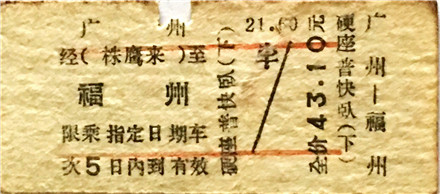 广 州
经(株鹰来)至
福 州
限乘指定日期车
次5日内到有效
硬座普快卧(下)
21.60
半
全价43.10元
硬座普快卧(下)
广州—福州